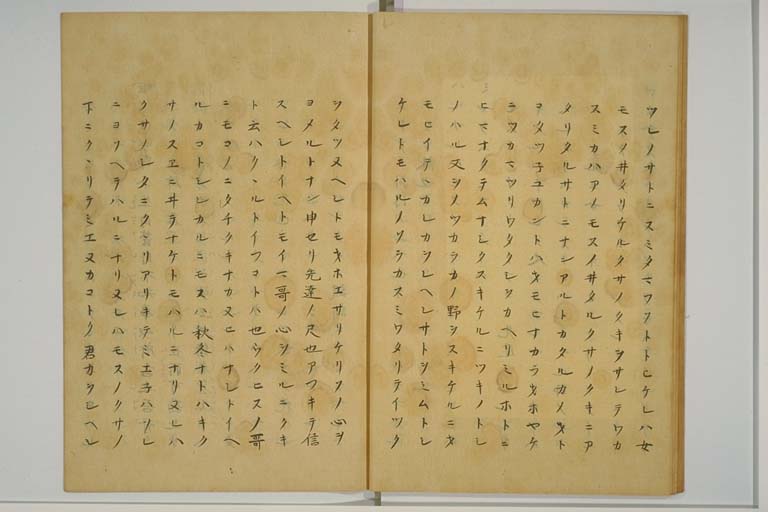 ツレノサトニスミタマフソトトヒケレハ女
モスノ井タリケルクサノクキヲサシテワカ
スミカハアノモスノ井タルクサノクキニア
タリタルサトニナンアルトカタルカノオト
コタツ子ユカントハオモヒナカラオホヤケ
ニツカマツリワタクシヲカヘリミルホトニ
ヒマナクテムナシクスキケルニツキノトシ
ノハル又シノツカラカノ野ヲスキケルニオ
モヒイテヽカレカシレヘシサトヲミムトシ
ケレトモハルノソラカスミワタリテイツク
シタツヌヘシトモオホエサリケリソノ心ヲ
ヨメルトナン申セリ先達ノ尺也アフキテ信
スヘシトイヘトモイマ哥ノ心ヲミルニクキ
ト云ハクヽルトイフコトハ也ウクヒスノ哥
ニモコノニタチクキナカ又ヒハナシトイヘ
ルカコトシシカルニモスハ秋冬ナトハキク
サノスヱニヰテナケトモハルニナリヌレハ
クサノシタニクヽリアリキテミエ子ハソレ
ニヨソヘテハルニナリヌレハモスノクサノ
下ニクヽリテミエヌカコトク君カヲシヘシ